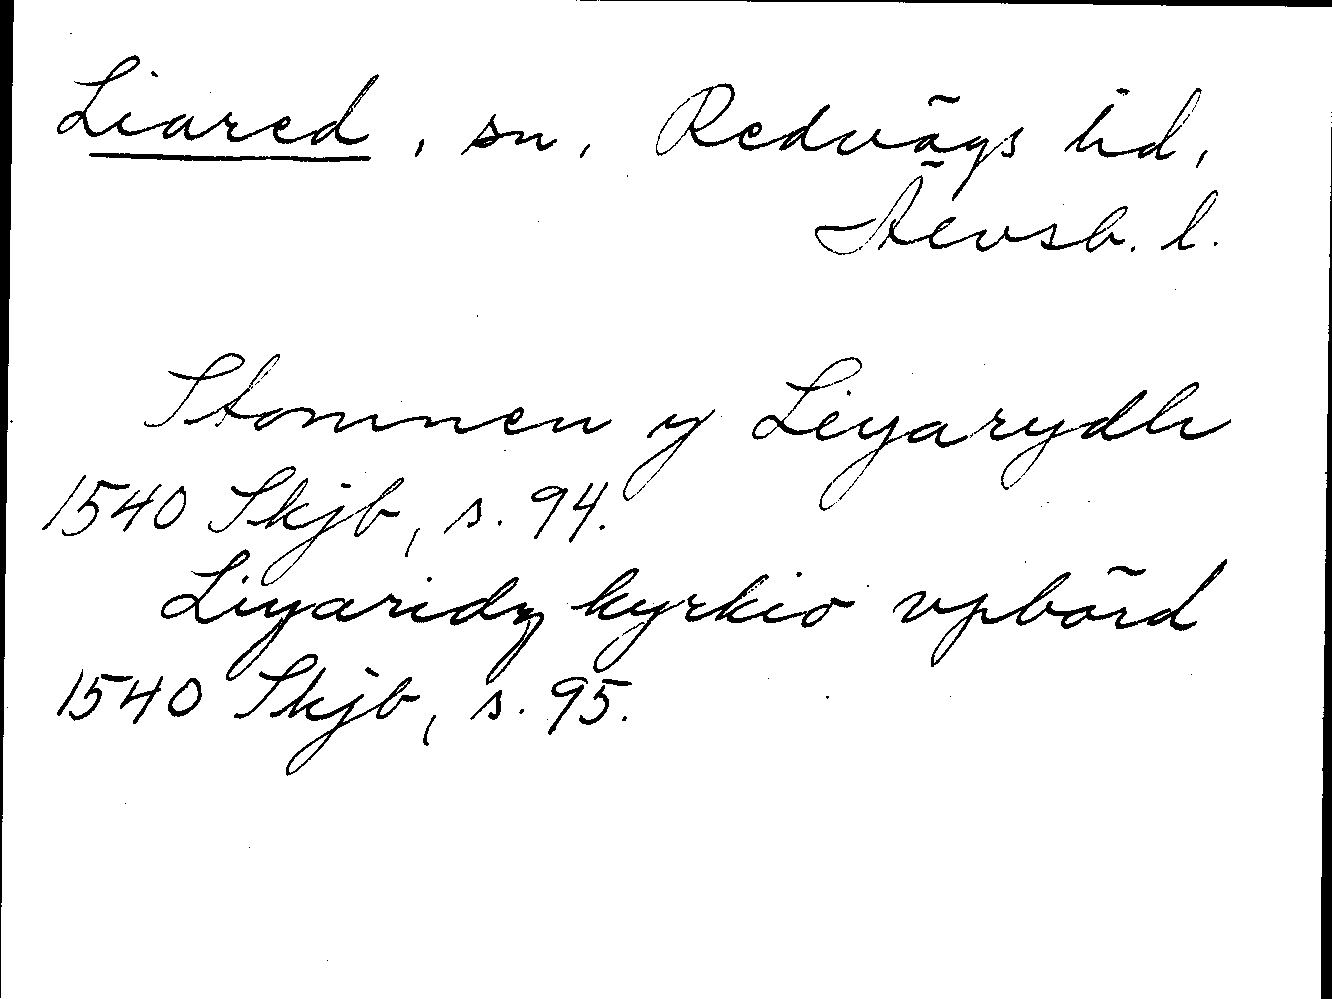 Liared, sn, Redvägs hd,
Älvsb. l.
Stommen y Leyarydh
1540 Skjb, s. 94.
Liyaridz kyrkio vpbörd
1540 Skjb, s. 95.